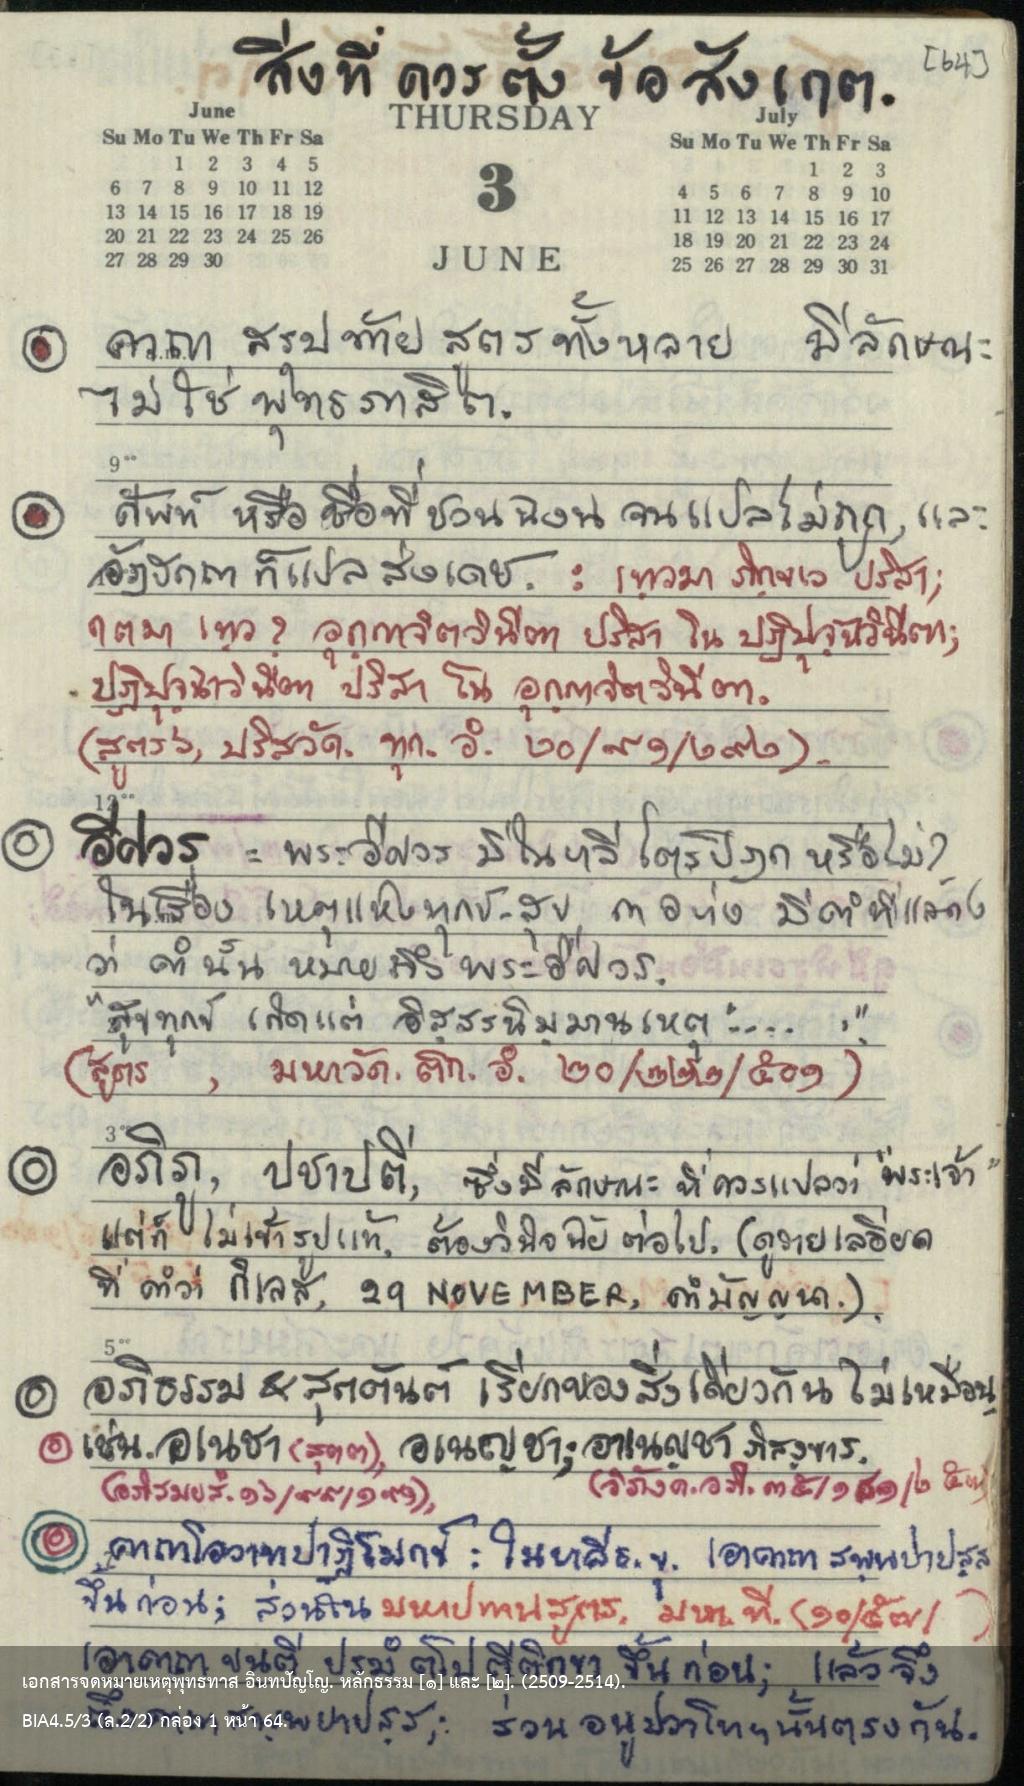 สิ่งที่ ควร ตั้ง ข้อ สังเกต.
[64]
June
THURSDAY
July
Su Mo Tu We Th Fr Sa
Su Mo Tu We Th Fr Sa
1 2 3 4 5
1 2 3
6 7 8 9 10 11 12
3
4 5 6 7 8 9 10
13 14 15 16 17 18 19
11 12 13 14 15 16 17
20 21 22 23 24 25 26
JUNE
18 19 20 21 22 23 24
27 28 29 30
25 26 27 28 29 30 31
คาถา สรุปท้าย สูตร ทั้งหลาย มีลักษณะ
ไม่ใช่ พุทธภาสิต.
9
ศัพท์ หรือ ชื่อที่ชวนฉงน จนแปลไม่ถูก, และ
อัฏฐกถา ก็แปล ส่งเดช. : เทฺวมา ภิกฺขเว ปริสา;
กตมา เทฺว? อุกฺกาจิตวินีตา ปริสา โน ปฏิปุจฺฉาวินีตา;
ปฏิปุจฺฉาวินีตา ปริสา โน อุกฺกาจิตวินีตา.
(สูตร๖, ปริสวัค. ทุก. อํ. ๒๐/๙๑/๒๙๒).
12
อีศวร = พระอีศวร มีในบาลี ไตรปิฎก หรือไม่?
ในเรื่อง เหตุแห่งทุกข์-สุข ๓ อย่าง มีคำที่แสดง
ว่า คำนั้น หมายถึง พระอีศวร.
"สุขทุกข์ เกิดแต่ อิสฺสรนิมฺมานเหตุ ....."
(สูตร , มหาวัค. ติก. อํ. ๒๐/๒๒๒/๕๐๑)
3
อภิภู, ปชาปติ, ซึ่งมีลักษณะ ที่ควรแปลว่า "พระเจ้า"
แต่ก็ ไม่เข้ารูปแท้, ต้องวินิจฉัย ต่อไป. (ดูรายเลอียด
ที่ คำว่า กิเลส, 29 NOVEMBER, คำมัญญนา.)
5
อภิธรรม & สุตตันต์ เรียกของสิ่งเดียวกัน ไม่เหมือน
เช่น. อเนชา (สุตต), อเนญฺชา; อาเนญฺชา ภิสงฺขาร.
(อภิสมยสํ. ๑๖/๙๙/๑๙๑), (วิภังค.อภิ. ๓๕/๑๘๑/๒๕๗)
คาถาโอวาทปาฏิโมกข์ : ในบาลีธ.ขุ. เอาคาถา สพฺพปาปสฺส
ขึ้นก่อน; ส่วนใน มหาปทานสูตร. มหา. ที. (๑๐/๕๗/ )
เอาคาถา ขนฺตี ปรมํ ตโป ตีติกฺขา ขึ้นก่อน; แล้วจึง
ส่วน อนูปวาโทฯ นั้นตรงกัน.
เอกสารจดหมายเหตุพุทธทาส อินทปัญโญ. หลักธรรม [๑] และ [๒]. (2509-2514).
BIA4.5/3 (ล.2/2) กล่อง 1 หน้า 64.